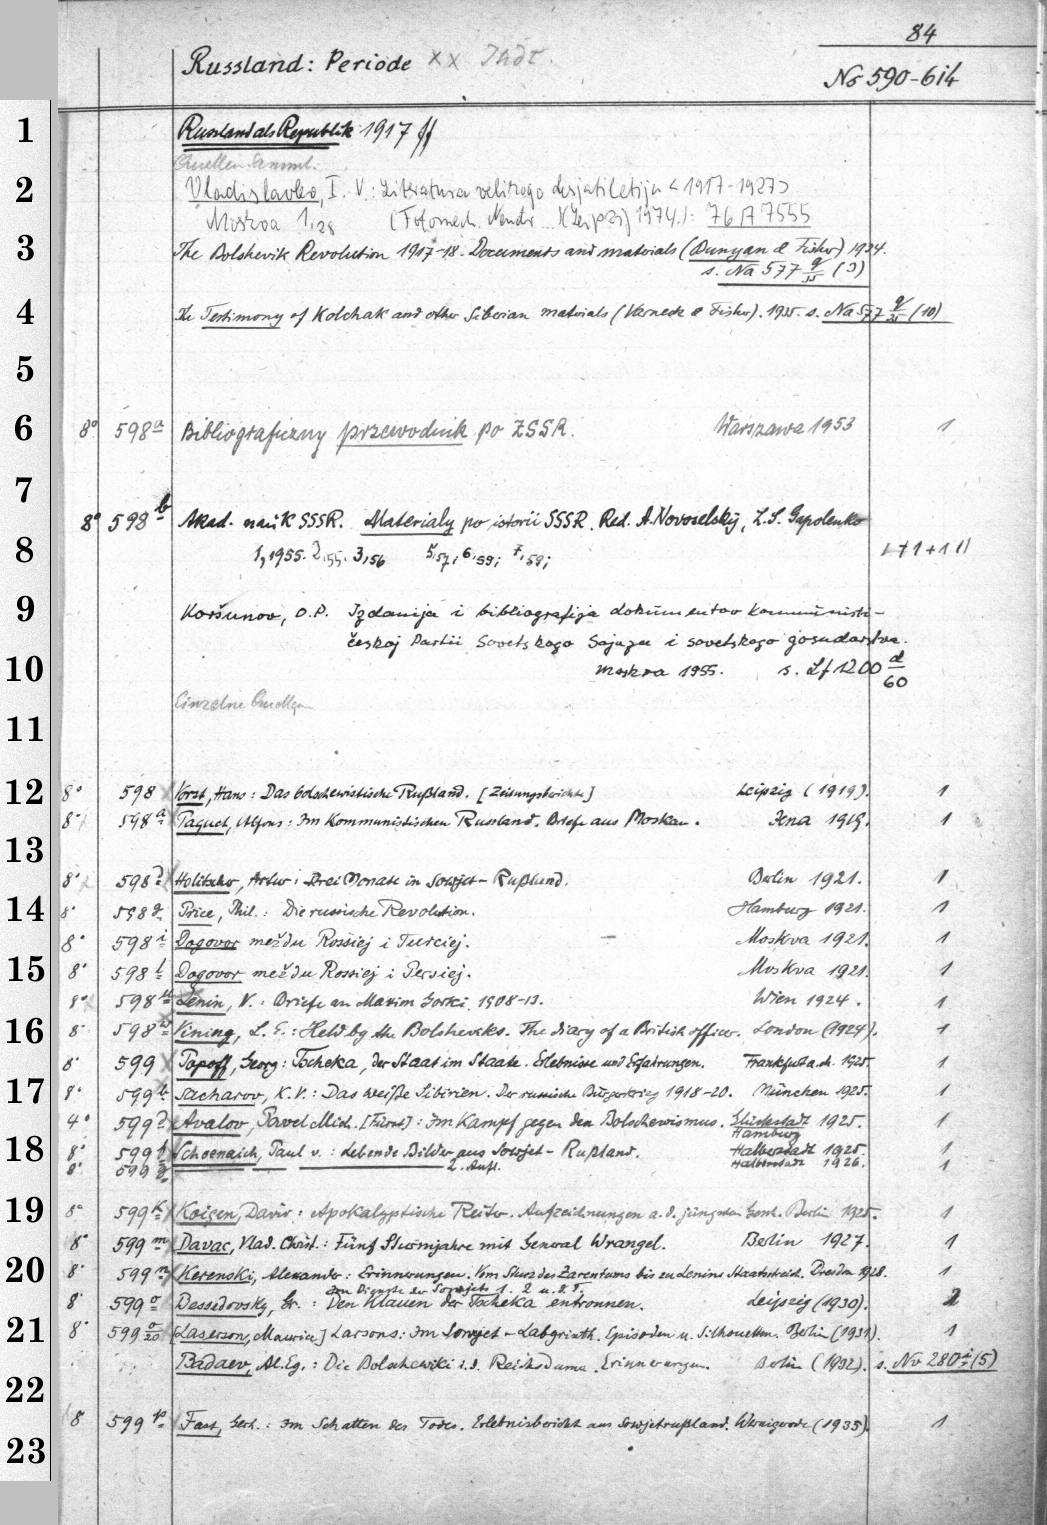 84
Russland: Periode XX Jhdt.
No 590-614
1
Russland als Republik 1917 ff
Quellen Samml.
2
Vladislavlev, I. V.: Literatura velikogo desjatiletija <1917-1927>
Moskva 1.28 (Fotomech. Neudr. Leipzig 1974.): 76 A 7555
3
The Bolshevik Revolution 1917-18. Documents and materials (Bunyan & Fisher) 1934.
s. Na 577 (9)
4
The Testimony of Kolchak and other Siberian materials (Varneck & Fisher). 1935. s. Na 577 (10)
5
6
8° 598 a Bibliograficzny przewodnik po ZSSR. Warszawa 1953 1
7
8° 598 b Akad. nauk SSSR. Materialy po istorii SSSR. Red. A. Novoselskij, L.S. Gapolenko
8
1,1955. 2,55. 3,56 5,57, 6,59; 7,59;
9
Koršunov, O.P. Izdanija i bibliografija dokumentov kommunisti-
českoj Partii Sovetskogo Sojuza i sovetskogo gosudarstva.
10
Moskva 1955. s. Lf 1200 d/60
Einzelne Quellen
11
12
8° 598 Vorst, Hans: Das bolschewistische Rußland. [Zeitungsberichte] Leipzig (1919). 1
8° 598 a Paquet, Alfons: Im Kommunistischen Russland. Briefe aus Moskau. Jena 1919. 1
13
8° 598 Holitscher, Artur: Drei Monate in Sowjet-Rußland. Berlin 1921. 1
14
8° 598 g Price, Phil.: Die russische Revolution. Hamburg 1921. 1
8° 598 i Dogovor meždu Rossiej i Turciej. – Moskva 1921. 1
15
8° 598 l Dogovor meždu Rossiej i Persiej. Moskva 1921. 1
8° 598 Lenin, V.: Briefe an Maxim Gorki 1908-13. Wien 1924. 1
16
8° 598 Vining, L. E.: Held by the Bolsheviks. The diary of a British officer. London (1924). 1
8° 599 Popoff, Georg: Tscheka, der Staat im Staate. Erlebnisse und Erfahrungen. Frankfurt a.M. 1925. 1
17
8° 599 b Sacharov, K.V.: Das weiße Sibirien. Der russische Bürgerkrieg 1918-20. München 1925. 1
4° 599 Avalov, Pavel Mich. [Fürst]: Im Kampf gegen den Bolschewismus. Glückstadt Hamburg 1925. 1
18
8° 599 f Schoenaich, Paul v.: Lebende Bilder aus Sowjet-Rußland. Halberstadt 1925. 1
8° 599 g 2. Aufl. Halberstadt 1926. 1
19
8° 599 k Koigen, David: Apokalyptische Reiter. Aufzeichnungen a. d. jüngsten Gesch. Berlin 1925. 1
8° 599 m Davac, Vlad. Christ.: Fünf Sturmjahre mit General Wrangel. Berlin 1927. 1
20
8° 599 n Kerenski, Alexander: Erinnerungen. Vom Sturz des Zarentums bis zu Lenins Staatsstreich. Dresden 1928. 1
Im Dienste der Sowjets 1. 2 u. 3 T.
8° 599 o Bessedovsky, Gr.: Den Klauen der Tscheka entronnen. Leipzig (1930). 2
21
8° 599 o/20 [Laserson, Maurice] Larsons: Im Sowjet-Labyrinth. Episoden u. Silhouetten. Berlin (1931). 1
Badaev, Al. Eg.: Die Bolschewiki i. d. Reichsduma. Erinnerungen. Berlin (1932). s. Nv 280 i (5)
22
8° 599 p Fast, Gerh.: Im Schatten des Todes. Erlebnisbericht aus Sowjetrußland. Wernigerode (1935). 1
23